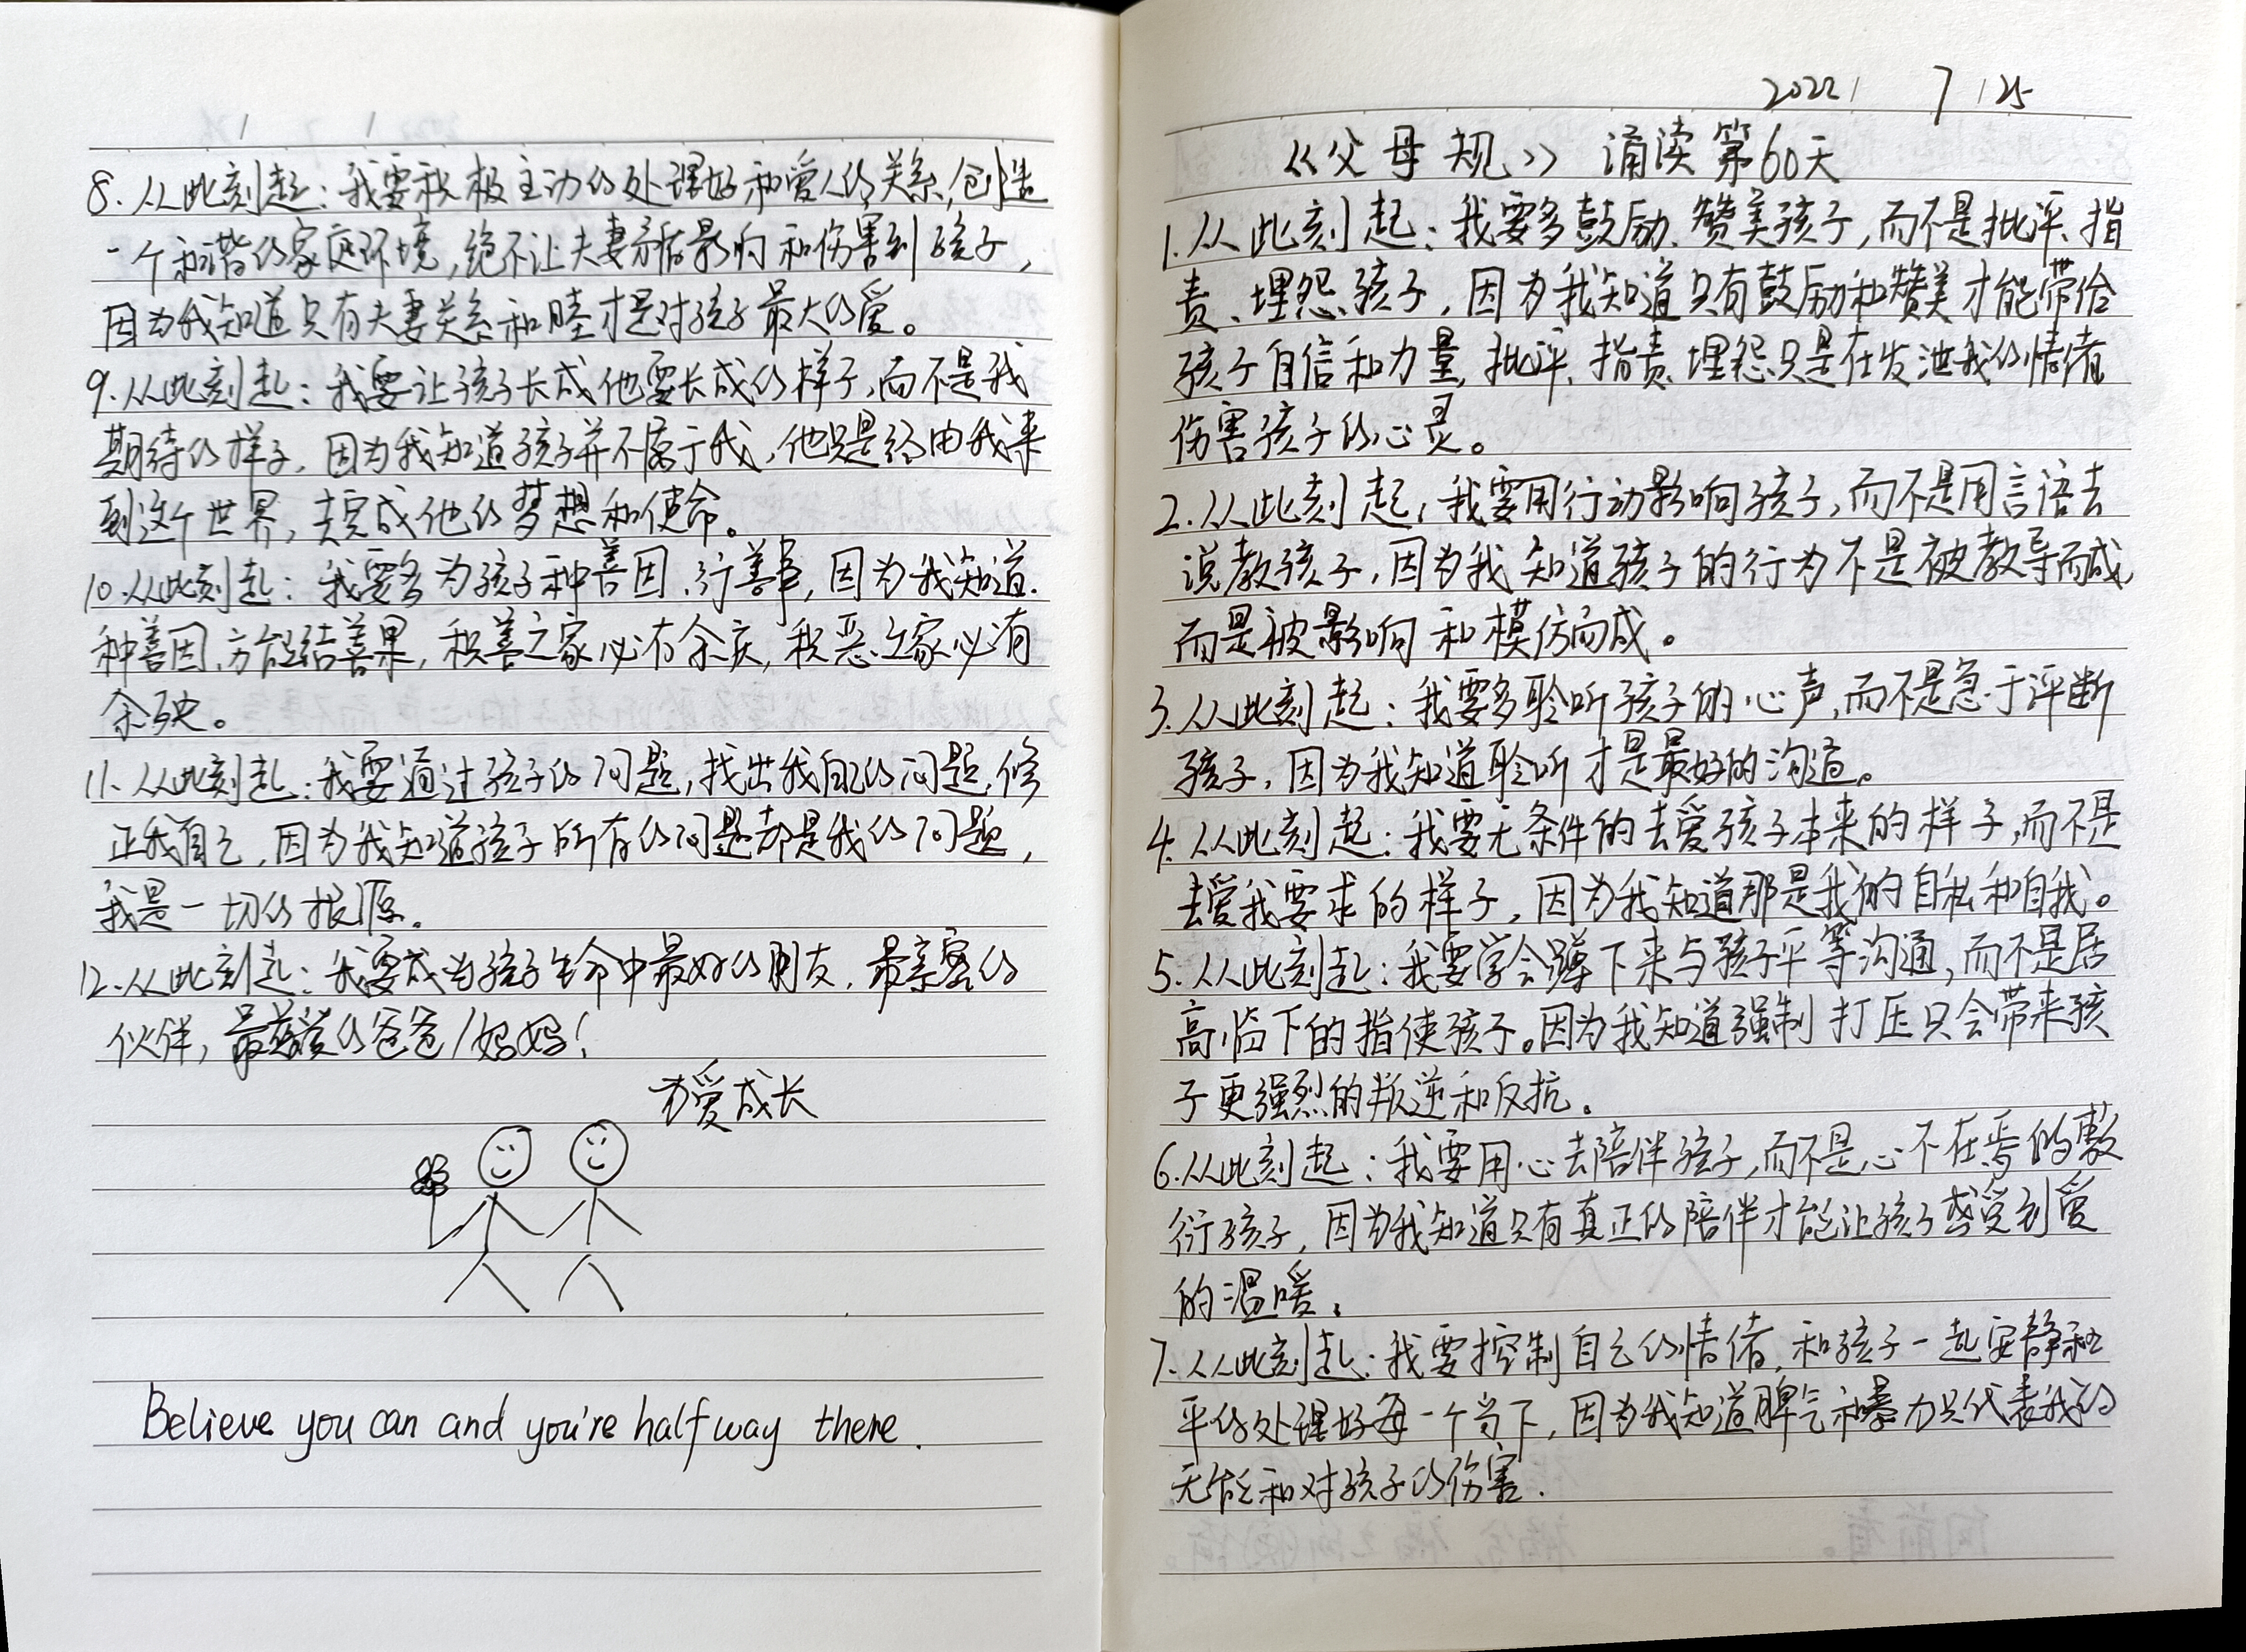 8.从此刻起：我要积极主动的处理好和爱人的关系，创造
一个和谐的家庭环境，绝不让夫妻矛盾影响和伤害到孩子，
因为我知道只有夫妻关系和睦才是对孩子最大的爱。
9.从此刻起：我要让孩子长成他要长成的样子，而不是我
期待的样子，因为我知道孩子并不属于我，他只是经由我来
到这个世界，去完成他的梦想和使命。
10.从此刻起：我要多为孩子种善因、行善事，因为我知道
种善因、方能结善果，积善之家必有余庆，积恶之家必有
余殃。
11.从此刻起：我要通过孩子的问题，找出我自己的问题，修
正我自己，因为我知道孩子所有的问题都是我的问题，
我是一切的根源。
12.从此刻起：我要成为孩子生命中最好的朋友，最亲密的
伙伴，最慈爱的爸爸/妈妈！
为爱成长
Believe you can and you're halfway there.
2022/ 7/25
《父母规》 诵读第60天
1.从此刻起：我要多鼓励、赞美孩子，而不是批评、指
责、埋怨孩子，因为我知道只有鼓励和赞美才能带给
孩子自信和力量，批评、指责、埋怨只是在发泄我的情绪
伤害孩子的心灵。
2.从此刻起，我要用行动影响孩子，而不是用言语去
说教孩子，因为我知道孩子的行为不是被教导而成，
而是被影响和模仿而成。
3.从此刻起：我要多聆听孩子的心声，而不是急于评断
孩子，因为我知道聆听才是最好的沟通。
4.从此刻起：我要无条件的去爱孩子本来的样子，而不是
去爱我要求的样子，因为我知道那是我的自私和自我。
5.从此刻起：我要学会蹲下来与孩子平等沟通，而不是居
高临下的指使孩子。因为我知道强制打压只会带来孩
子更强烈的叛逆和反抗。
6.从此刻起：我要用心去陪伴孩子，而不是心不在焉的敷
衍孩子，因为我知道只有真正的陪伴才能让孩子感受到爱
的温暖。
7.从此刻起：我要控制自己的情绪，和孩子一起安静和
平的处理好每一个当下，因为我知道脾气和暴力只代表我的
无能和对孩子的伤害.